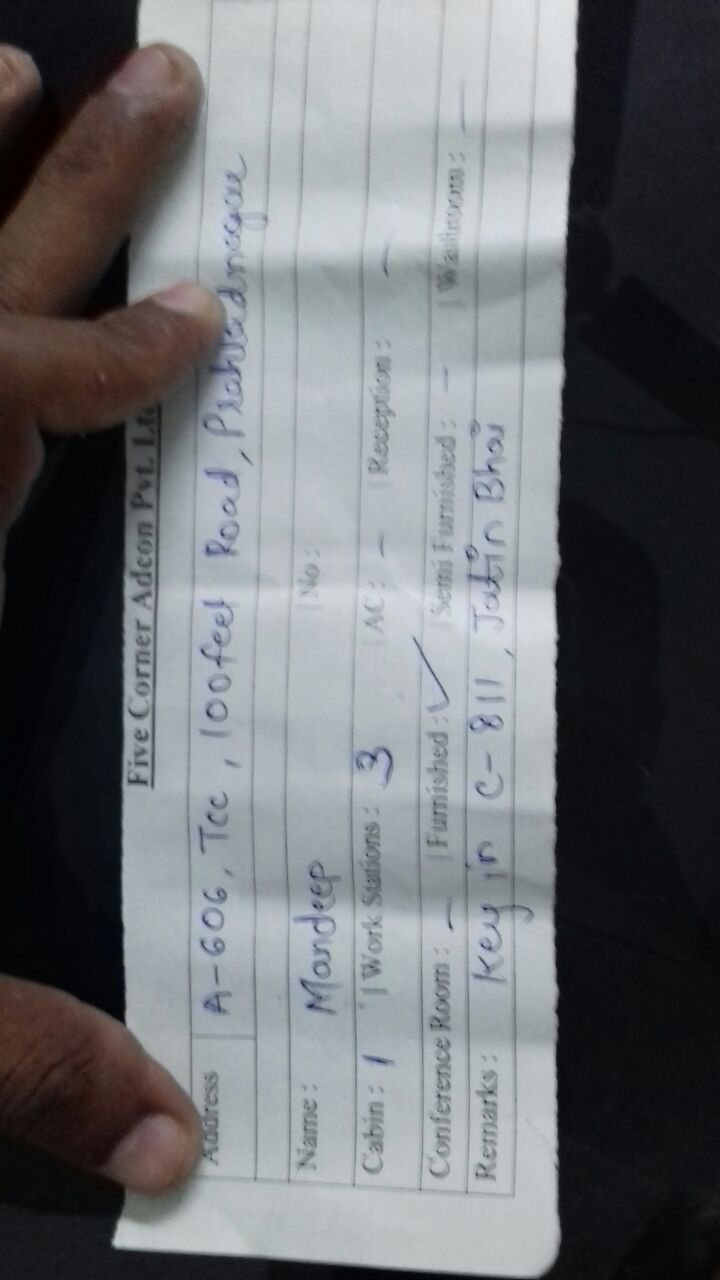 Five Corner Adcon Pvt. Ltd
Address A-606, Tcc, 100feet Road, Prahladnagar
Name : Mandeep | No :
Cabin : 1 | Work Stations : 3 | AC : - | Reception : -
Conference Room : - | Furnished : ✓ | Semi Furnished : - | Washroom : -
Remarks : Key in C-811, Jatin Bhai